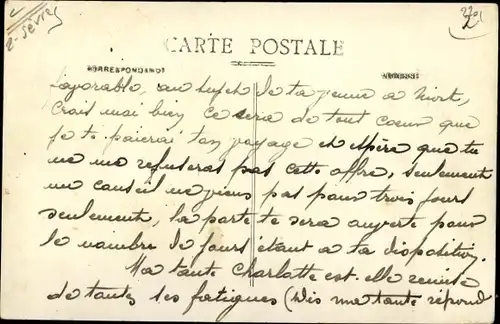 2-Sèvres
CARTE POSTALE
CORRESPONDANCE
ADRESSE
favorable, au sujet de ta venue a Niort,
Crais moi bien ce sera de tout coeur que
je te paierai ton voyage et espère que tu
ne me refuseras pas cette offre, seulement
un conseil ne viens pas pour trois jours
seulement, la porte te sera ouverte pour
le nombre de jours étant a ta disposition.
Ma tante Charlotte est-elle remise
de toutes ses fatigues (Dis ma tante répond